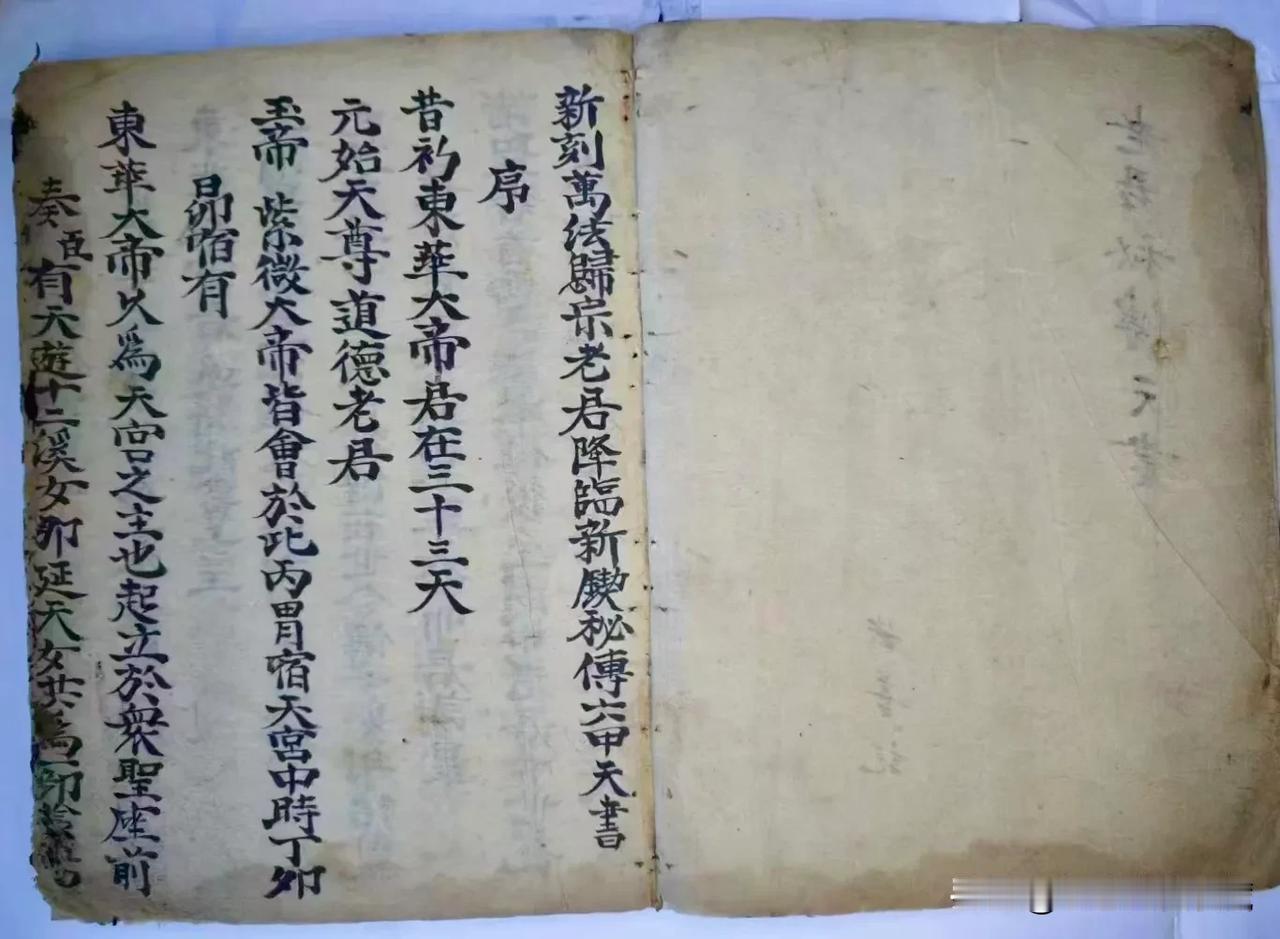 新刻萬法歸宗老君降臨新鐭秘傳六甲天書
序
昔初東華大帝君在三十三天
元始天尊道德老君
玉帝紫微大帝皆會於此丙胃宿天宮中時丁卯
昴宿有
東華大帝以為天宮之主也起立於眾聖座前
奏臣有天遊十二溪女那延天女共為一部